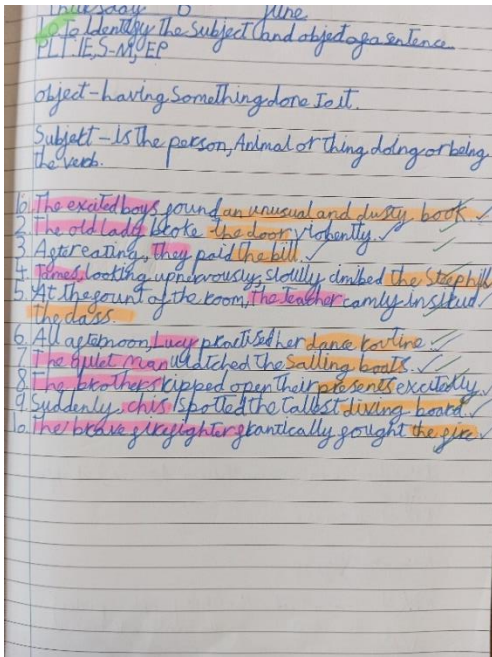 Thursday 6 June
LO To Identify the Subject and object of a sentence
PLT: IE, S-M, EP
object - having Something done to it.
Subject - Is the person, Animal or thing doing or being
the verb.
1. The excited boys found an unusual and dusty book.
2. The old lady broke the door violently.
3 After eating, they paid the bill.
4. looking up nervously, slowly climbed the Steep hill
5. At the fount of the room, the Teacher camly
the class.
6. All afternoon, Lucy practised her dance routine
7. The quiet man watched the Sailing boats.
8. The brothers ripped open their presents excitedly.
9. Suddenly, chis spotted the tallest diving board.
10. The brave firefighter frantically fought the fire